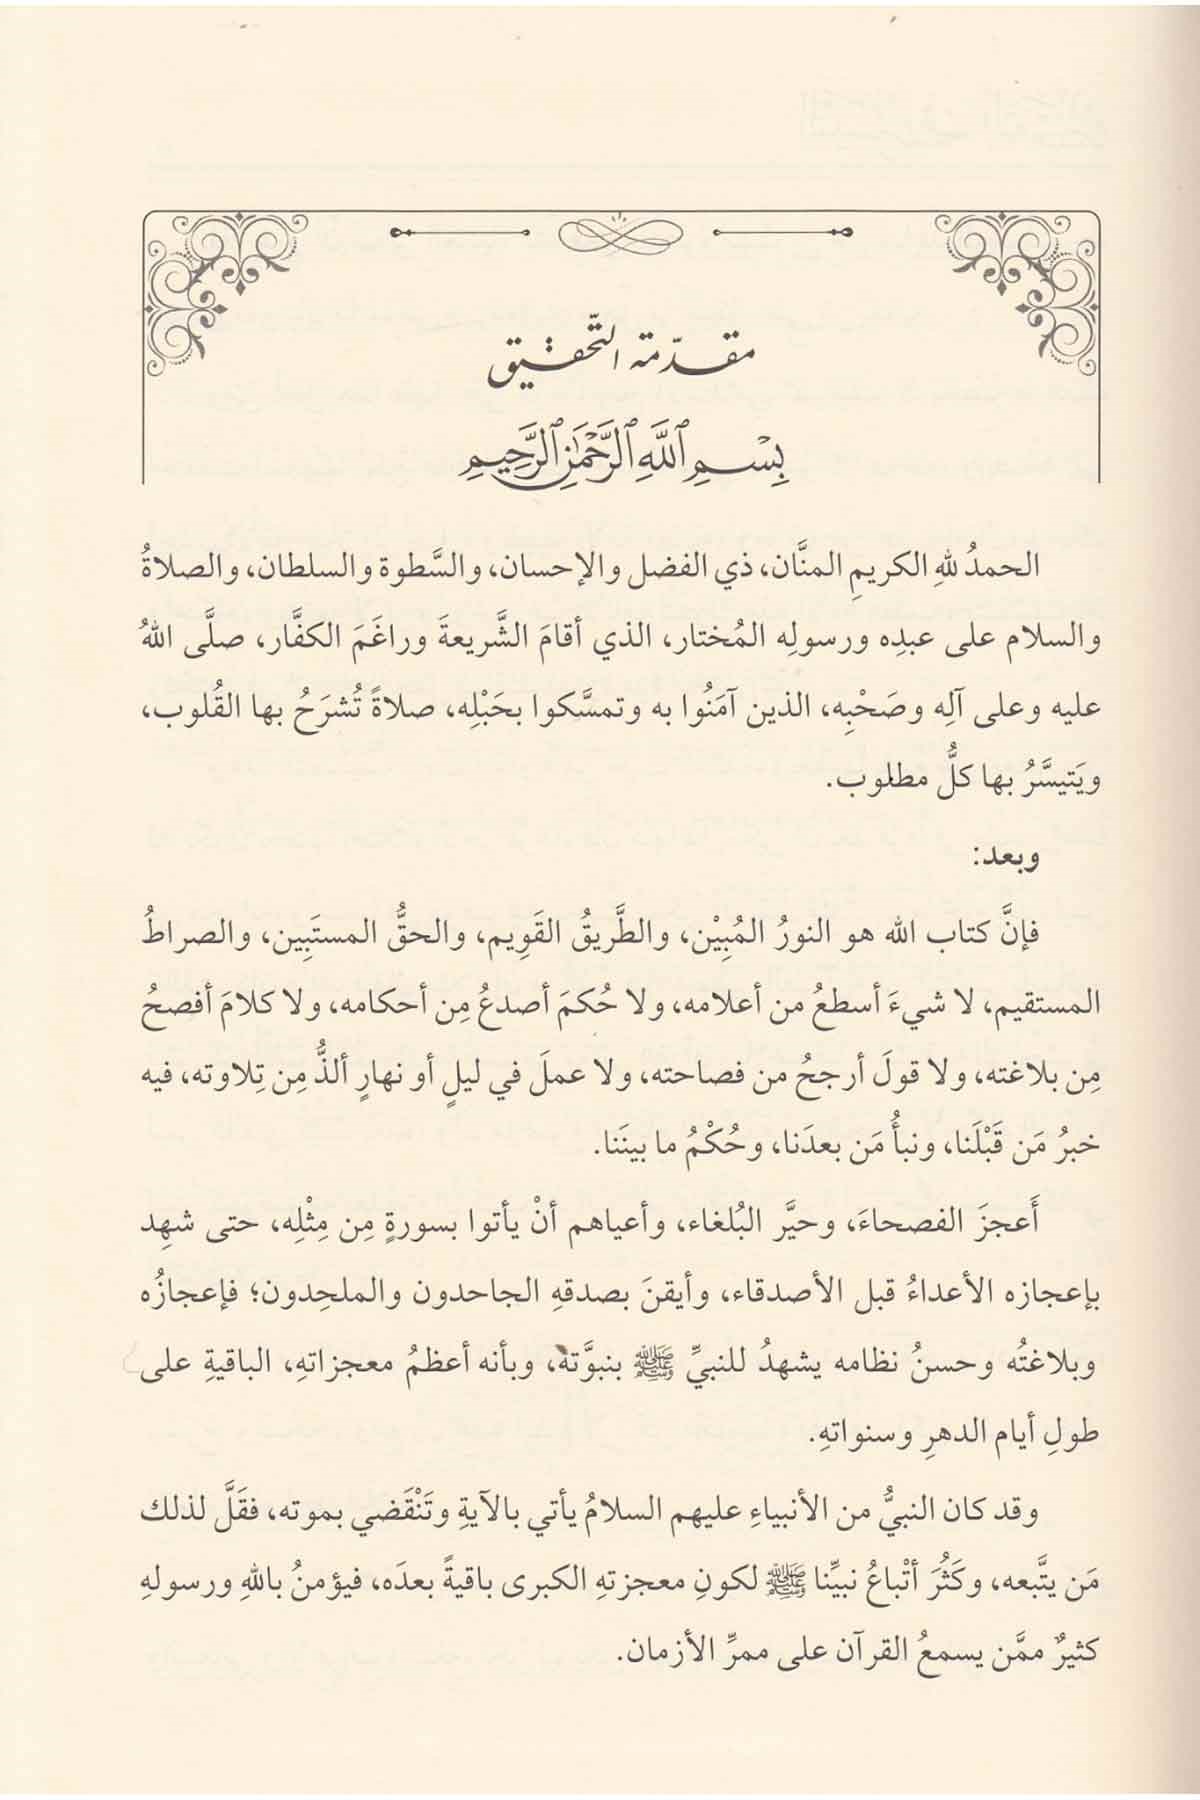 مقدّمة التّحقيق
بِسْمِ ٱللَّهِ ٱلرَّحْمَٰنِ ٱلرَّحِيمِ
الحمدُ للهِ الكريمِ المنَّان، ذي الفضل والإحسان، والسَّطوة والسلطان، والصلاةُ
والسلام على عبدِه ورسولِه المُختار، الذي أقامَ الشَّريعةَ وراغَمَ الكفَّار، صلَّى اللهُ
عليه وعلى آلِه وصَحْبِه، الذين آمَنُوا به وتمسَّكوا بحَبْلِه، صلاةً تُشرَحُ بها القُلوب،
ويَتيسَّرُ بها كلُّ مطلوب.
وبعد:
فإنَّ كتاب الله هو النورُ المُبِيْن، والطَّريقُ القَوِيم، والحقُّ المستَبِين، والصراطُ
المستقيم، لا شيءَ أسطعُ من أعلامه، ولا حُكمَ أصدعُ مِن أحكامه، ولا كلامَ أفصحُ
مِن بلاغته، ولا قولَ أرجحُ من فصاحته، ولا عملَ في ليلٍ أو نهارٍ ألذُّ مِن تِلاوته، فيه
خبرُ مَن قَبْلَنا، ونبأُ مَن بعدَنا، وحُكْمُ ما بينَنا.
أَعجزَ الفصحاءَ، وحيَّر البُلغاء، وأعياهم أنْ يأتوا بسورةٍ مِن مِثْلِه، حتى شهِد
بإعجازه الأعداءُ قبل الأصدقاء، وأيقنَ بصدقهِ الجاحدون والملحِدون؛ فإعجازُه
وبلاغتُه وحسنُ نظامه يشهدُ للنبيِّ ﷺ بنبوَّته، وبأنه أعظمُ معجزاتهِ، الباقيةِ على
طولِ أيام الدهرِ وسنواتهِ.
وقد كان النبيُّ من الأنبياءِ عليهم السلامُ يأتي بالآيةِ وتَنْقَضي بموته، فقَلَّ لذلك
مَن يتَّبعه، وكَثُرَ أتْباعُ نبيِّنا ﷺ لكونِ معجزتهِ الكبرى باقيةً بعدَه، فيؤمنُ باللهِ ورسولهِ
كثيرٌ ممَّن يسمعُ القرآن على ممرِّ الأزمان.